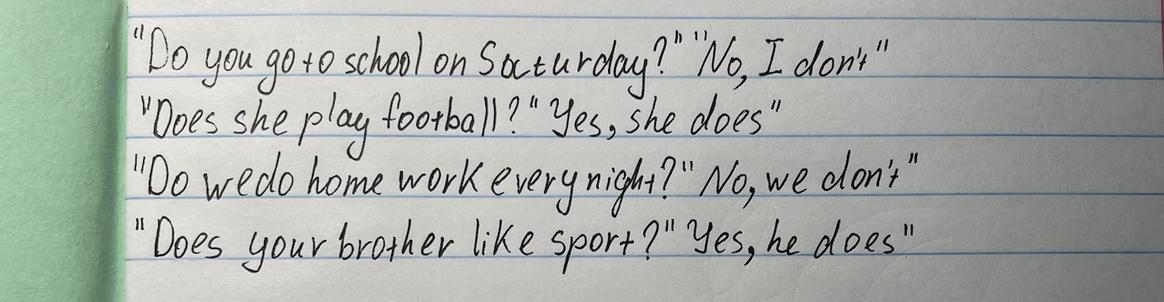 "Do you go to school on Saturday?" "No, I don't"
"Does she play football?" Yes, she does"
"Do we do home work every night?" No, we don't"
"Does your brother like sport?" Yes, he does"